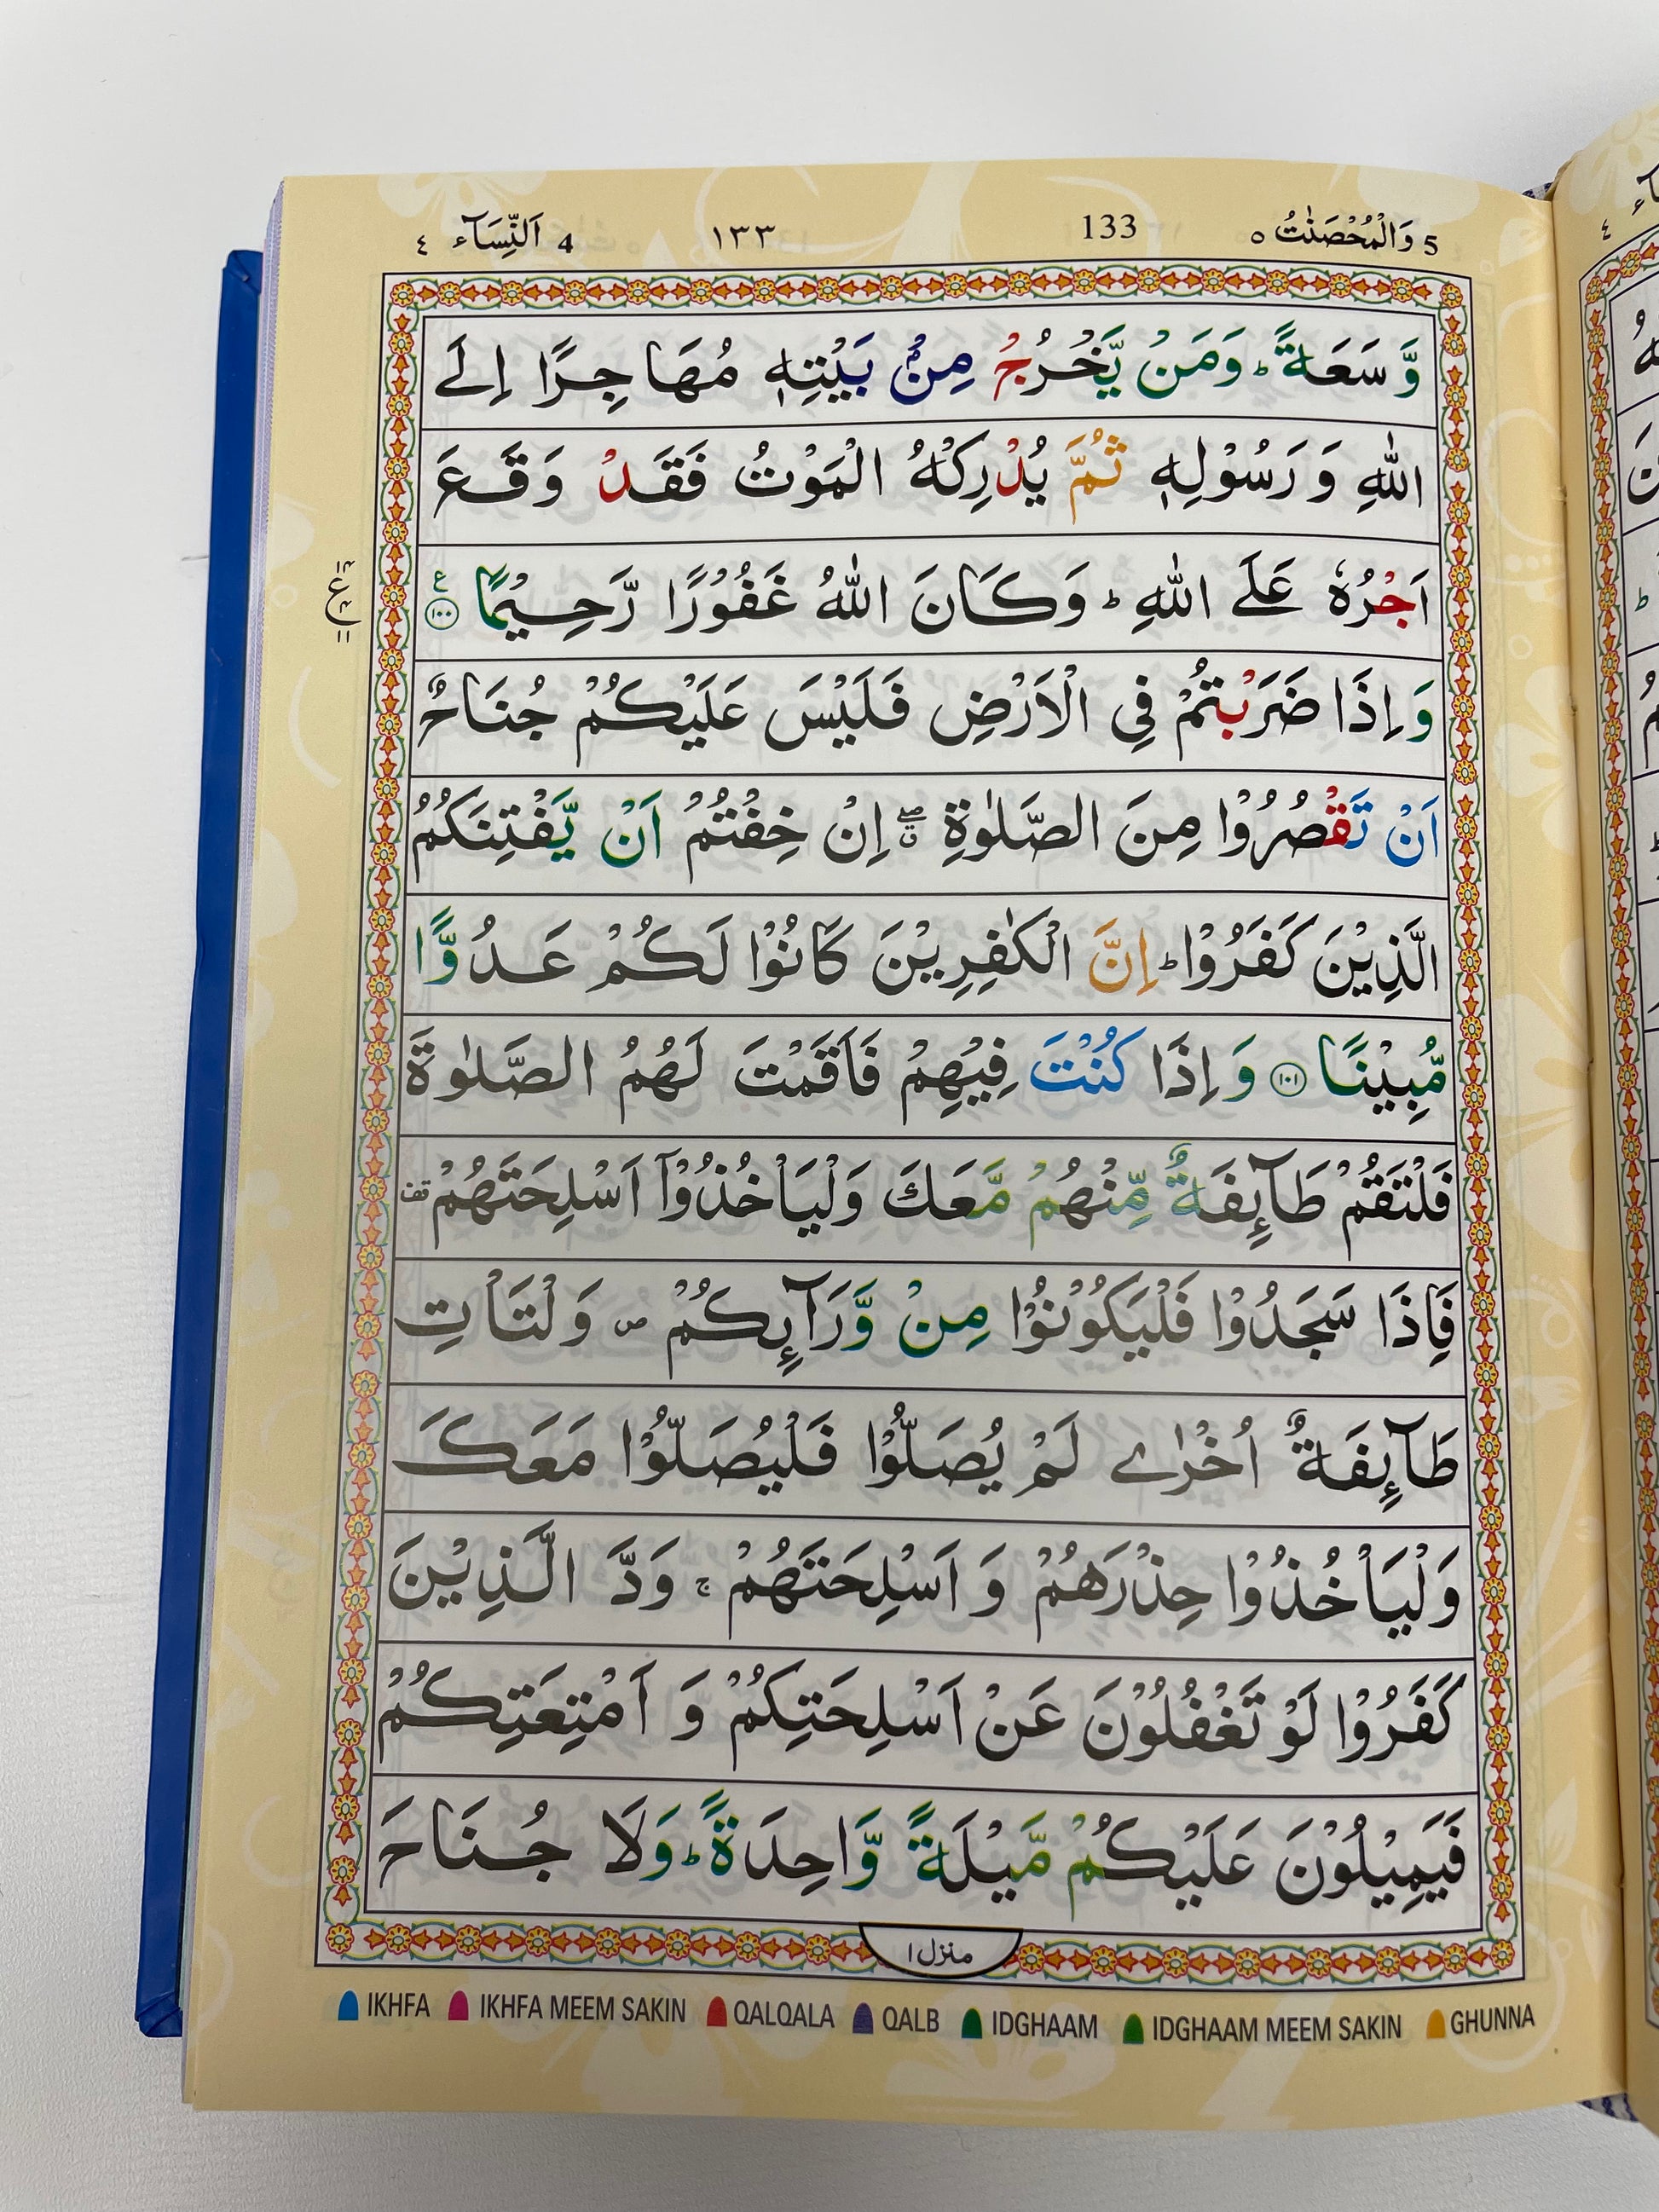 5 وَالْمُحْصَنٰتُ ٥ 133 ١٣٣ 4 اَلنِّسَآء ٤
وَّسَعَةً ؕ وَمَنْ يَّخْرُجْ مِنْۢ بَيْتِهٖ مُهَاجِرًا اِلَى
اللّٰهِ وَرَسُوْلِهٖ ثُمَّ يُدْرِكْهُ الْمَوْتُ فَقَدْ وَقَعَ
اَجْرُهٗ عَلَى اللّٰهِ ؕ وَكَانَ اللّٰهُ غَفُوْرًا رَّحِيْمًا ۧ ١٠٠
وَاِذَا ضَرَبْتُمْ فِى الْاَرْضِ فَلَيْسَ عَلَيْكُمْ جُنَاحٌ
اَنْ تَقْصُرُوْا مِنَ الصَّلٰوةِ ۖۗ اِنْ خِفْتُمْ اَنْ يَّفْتِنَكُمُ
الَّذِيْنَ كَفَرُوْا ؕ اِنَّ الْكٰفِرِيْنَ كَانُوْا لَكُمْ عَدُوًّا
مُّبِيْنًا ١٠١ وَاِذَا كُنْتَ فِيْهِمْ فَاَقَمْتَ لَهُمُ الصَّلٰوةَ
فَلْتَقُمْ طَآٮِٕفَةٌ مِّنْهُمْ مَّعَكَ وَلْيَاْخُذُوْۤا اَسْلِحَتَهُمْ قف
فَاِذَا سَجَدُوْا فَلْيَكُوْنُوْا مِنْ وَّرَآٮِٕكُمْ ص وَلْتَاْتِ
طَآٮِٕفَةٌ اُخْرٰى لَمْ يُصَلُّوْا فَلْيُصَلُّوْا مَعَكَ
وَلْيَاْخُذُوْا حِذْرَهُمْ وَاَسْلِحَتَهُمْ ۚ وَدَّ الَّذِيْنَ
كَفَرُوْا لَوْ تَغْفُلُوْنَ عَنْ اَسْلِحَتِكُمْ وَاَمْتِعَتِكُمْ
فَيَمِيْلُوْنَ عَلَيْكُمْ مَّيْلَةً وَّاحِدَةً ؕ وَلَا جُنَاحَ
منزل ١
IKHFA IKHFA MEEM SAKIN QALQALA QALB IDGHAAM IDGHAAM MEEM SAKIN GHUNNA